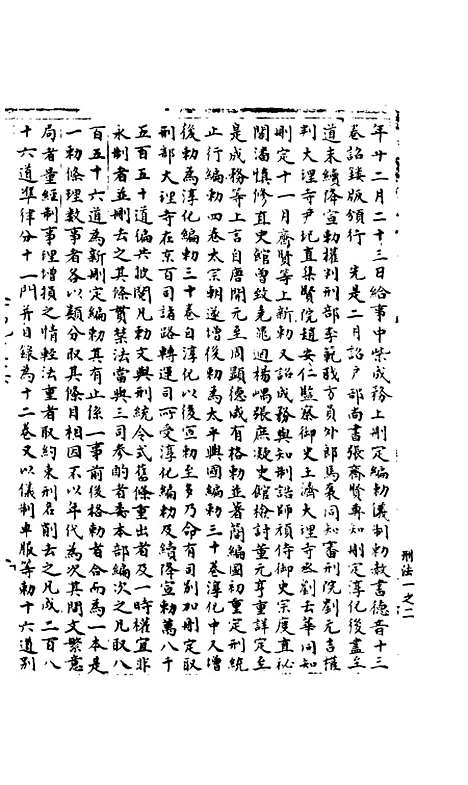 年十二月二十三日給事中柴成務上刪定編勑儀制勑赦書德音十三
卷詔鏤版頒行　先是二月詔戶部尚書張齊賢專知刪定淳化後盡至
道末續降宣勑權判刑部李範職方員外郎馬襄同知審刑院劉元吉權
判大理寺尹玘直集賢院趙安仁監察御史王濟大理寺丞劉去華同知
刪定十一月齊賢等上新勑又詔成務與知制誥師頏侍御史宗度直祕
閣潘慎修直史館曾致堯晁迥楊嵎張庶凝史館檢討董元亨重詳定至
是成務等上言自唐開元至周顯德咸有格勑並著簡編國初重定刑統
止行編勑四卷太宗朝遂增後勑為太平興國編勑三十卷淳化中又增
後勑為淳化編勑三十卷自淳化以後宣勑至多乃命有司別加刪定取
刑部大理寺在京百司諸路轉運司所受淳化編勑及續降宣勑萬八千
五百五十道徧共披閱凡勑文與刑統令式舊條重出者及一時權宜非
永制者並刪去之其條貫禁法當與三司參酌者委本部編次之凡取八
百五十六道為新刪定編勑其有止係一事前後格勑者合而為一本是
一勑條理數事者各以類分取其條目相因不以年代為次其閒文繁意
局者量經制事理增損之情輕法重者取約束刑名削去之凡成二百八
十六道準律分十一門并目錄為十二卷又以儀制車服等勑十六道別
刑法一之二